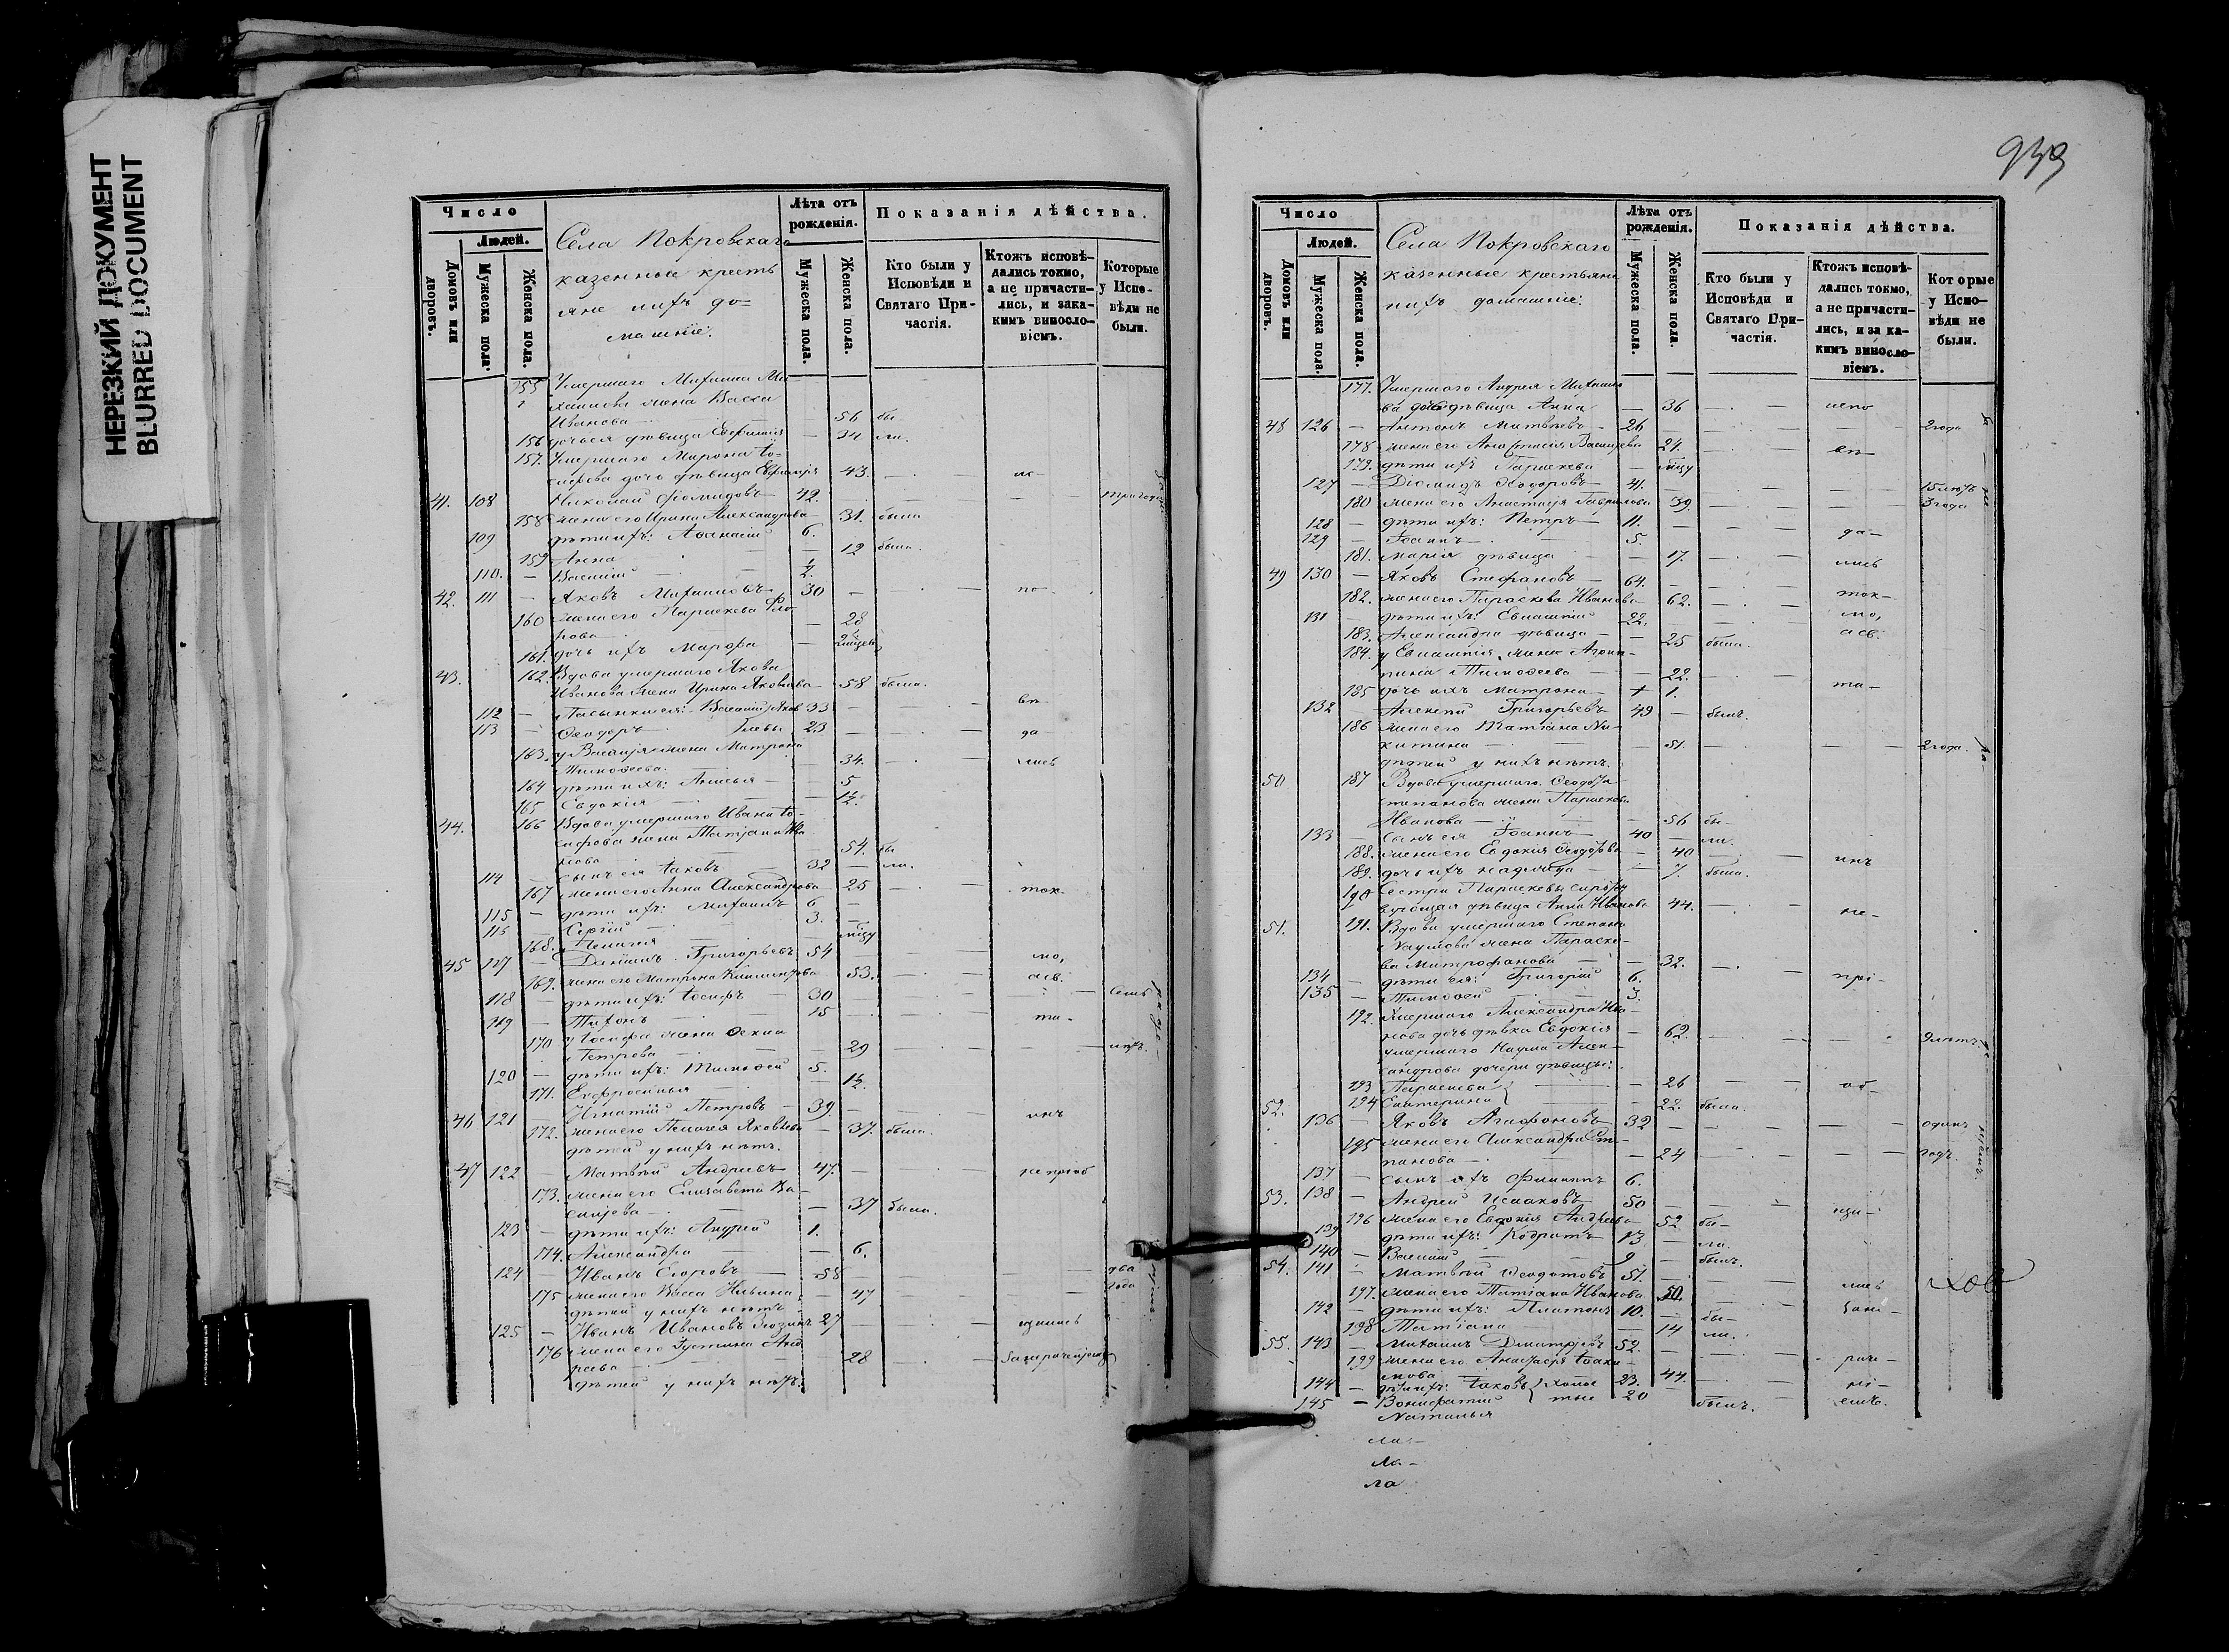 НЕРЕЗКИЙ ДОКУМЕНТ
BLURRED DOCUMENT
Число
Людей.
Домовъ или дворовъ.
Мужеска пола.
Женска пола.
Села Покровскаго
казенные кресть
яне ихъ до=
машніе:
Лѣта отъ рожденія.
Мужеска пола.
Женска пола.
Показанія дѣйства.
Кто были у Исповѣди и Святаго Причастія.
Ктожъ исповѣ-
дались токмо,
а не причасти-
лись, и зака-
кимъ виносло-
віемъ.
Которые
у Испо-
вѣди не
были.
155 Умершаго Михаила Ми-
хаилова жена Васса
Иванова — 56 бы
156 дочь ея дѣвица Евфимія — 34 ли.
157. Умершаго Мирона Іо-
сифова дочь дѣвица Евфимія 43.
41. 108 Николай Діомидовъ 42. три года
158 жена его Ирина Александрова 31. была
109 дѣти ихъ: Аѳанасій 6.
159 Анна 12 была.
110. — Василій — ½
42. 111 — Яковъ Михаиловъ 30 — по-
160 жена его Параскева Фло
рова — 28
161. дочь ихъ Марѳа —
43. 162. Вдова умершаго Якова
Иванова жена Ирина Яковлева 58 была.
112 — Пасынки ея: Василій Яков 33 вѣ-
113 — Ѳеодоръ левы 23 да-
163. у Василія жена Матрона
Тимоѳеева — 34. лись
164 дѣти ихъ: Анисья — 5
165 Евдокія — 1½.
44. 166 Вдова умершаго Ивана Іо-
сифова жена Татіана Ива
нова — 54. бы
114 — сынъ ея Іаковъ 32 ли.
167 жена его Анна Александрова 25 ток-
115 — дѣти ихъ: Михаилъ 6 —
116 — Сергій — 3. —
168. Пелагея —
45 117 — Даніилъ Григорьевъ 54 мо,
169. жена его Матрона Климентова 53. а св.
118 — дѣти ихъ: Іосифъ — 30 семь
119 — Тихонъ — 15 та-
170 у Іосифа жена Ѳекла
Петрова — 29
120 — дѣти ихъ: Тимоѳей 5.
171. Евфросинья — 1½.
46 121 — Игнатій Петровъ — 39 инъ
172. жена его Пелагея Яковлева — 37. была.
дѣтей у нихъ нѣтъ.
47 122 — Матвѣй Андреевъ 47. не пріоб
173. жена его Елизавета Ва-
сильева — 37 была.
123 — дѣти ихъ: Андрей 1.
174. Александра — 6.
124 — Иванъ Егоровъ — 58 два
175 жена его Васса Ильина — 47 года
дѣтей у нихъ нѣтъ
125 — Иванъ Ивановъ 27 щились
176 жена его Устина Анд
реева — 28
дѣтей у нихъ нѣтъ.
939
Число
Людей.
Домовъ или дворовъ.
Мужеска пола.
Женска пола.
Села Покровскаго
казенные крестьяне
ихъ домашніе:
Лѣта отъ рожденія.
Мужеска пола.
Женска пола.
Показанія дѣйства.
Кто были у
Исповѣди и
Святаго При-
частія.
Ктожъ исповѣ-
дались токмо,
а не причасти-
лись, и за ка-
кимъ виносло-
віемъ.
Которые
у Испо-
вѣди не
были.
177. Умершаго Андрея Михаило
ва дочь дѣвица Анна — 36 испо
48 126 — Антонъ Матвѣевъ — 26 2 года
178 жена его Анастасія Васильева 24. вѣ-
179. дѣти ихъ Параскева —
127 — Діомидъ Ѳеодоровъ 41. 15 лѣтъ
180 жена его Анастасія Гаврилова 39. 3 года
128 — дѣти ихъ: Петръ — 11.
129 — Іоаннъ — 5. да-
181. Марія дѣвица — 17. лись
49 130 — Яковъ Стефановъ — 64.
182. жена его Параскева Иванова 62. ток-
131 — дѣти ихъ: Евлампій 22. мо,
183. Александра дѣвица — 25 была. а св.
184. у Евлампія жена Агрип-
пина Тимоѳеева — 22.
185 дочь ихъ Матрона — 1. та-
132 — Алексѣй Григорьевъ 49 — былъ.
186 жена его Татіана Ни-
китина — 51. 2 года.
дѣтей у нихъ нѣтъ.
50 187 Вдова умершаго Ѳеодора
Степанова жена Параскева
Иванова — 56 бы-
133 — сынъ ея Іоаннъ — 40 — ли.
188. жена его Евдокія Ѳеодорова — 40 инъ
189. дочь ихъ Надежда — 7. была.
190 Сестра Параскевы
дѣвица Анна Иванова 44. не-
51. 191. Вдова умершаго Степана
Наумова жена Параске-
ва Митрофанова — 32.
134 — дѣти ея: Григорій 6. прі-
135 — Тимоѳей — 3.
192. Умершаго Александра Ива-
нова дочь дѣвка Евдокія — 62. 9 лѣтъ.
умершаго Наума Алек-
сандрова дочери дѣвицы:
193 Параскева — 26 об
194 Екатерина — 22. была.
52. 136 — Яковъ Агафоновъ 32 одинъ
195 жена его Александра Сте-
панова — 24 годъ.
137 — сынъ ихъ Филиппъ 6.
53. 138 — Андрей Исааковъ 50
196 жена его Евдокія Андреева 52 бы- щи-
139 дѣти ихъ: Кодратъ 13 — ли.
140 — Василій — 9 — былъ.
54. 141 — Матвѣй Ѳеодотовъ 51. —
197. жена его Татіана Иванова 50. лись
142 — дѣти ихъ: Платонъ 10. — бы-
198 Татіана — 14 ли.
55. 143 — Михаилъ Дмитріевъ 52.
199 жена его Анастасія Іоаки-
мова — 44.
144 — дѣти ихъ: Іаковъ холос 23.
145 — Вонифатій тые 20 былъ.
Наталья
ла